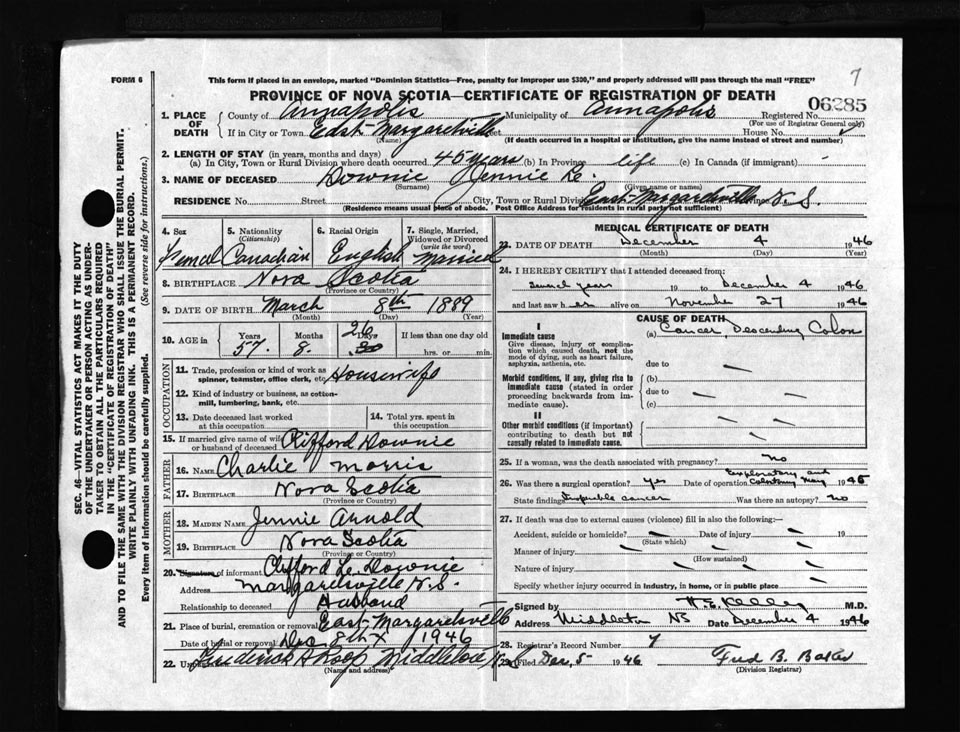 FORM 6
This form if placed in an envelope, marked "Dominion Statistics—Free, penalty for improper use $300," and properly addressed will pass through the mail "FREE"
7
PROVINCE OF NOVA SCOTIA—CERTIFICATE OF REGISTRATION OF DEATH
06285
1. PLACE OF DEATH
County of Annapolis Municipality of Annapolis Registered No.
(For use of Registrar General only)
If in City or Town East Margaretsville Street House No.
(Name) (If death occurred in a hospital or institution, give the name instead of street and number)
2. LENGTH OF STAY (in years, months and days)
(a) In City, Town or Rural Division where death occurred 45 years (b) In Province life (c) In Canada (if immigrant) -
3. NAME OF DECEASED Downie Jennie
(Surname) (Given name or names)
RESIDENCE No. Street City, Town or Rural Division East Margaretsville Province N. S.
(Residence means usual place of abode. Post Office Address for residents in rural parts not sufficient)
4. Sex
Femal
5. Nationality (Citizenship)
Canadian
6. Racial Origin
English
7. Single, Married, Widowed or Divorced (write the word)
Married
8. BIRTHPLACE Nova Scotia
(Province or Country)
9. DATE OF BIRTH March 8th 1889
(Month) (Day) (Year)
10. AGE in
Years 57.
Months 8.
Days 26
If less than one day old
hrs. or min.
OCCUPATION
11. Trade, profession or kind of work as spinner, teamster, office clerk, etc. Housewife
12. Kind of industry or business, as cotton-mill, lumbering, bank, etc.
13. Date deceased last worked at this occupation
14. Total yrs. spent in this occupation
15. If married give name of wife or husband of deceased Clifford Downie
FATHER
16. NAME Charlie Morris
17. BIRTHPLACE Nova Scotia
(Province or Country)
MOTHER
18. MAIDEN NAME Jennie Arnold
19. BIRTHPLACE Nova Scotia
(Province or Country)
20. Signature of informant Clifford L. Downie
Address Margaretsville N.S.
Relationship to deceased Husband
21. Place of burial, cremation or removal East Margaretsville
Date of burial or removal Dec 8th 1946
22. Frederick Roop Middleton N.S
(Name and address)
MEDICAL CERTIFICATE OF DEATH
23. DATE OF DEATH December 4 1946
(Month) (Day) (Year)
24. I HEREBY CERTIFY that I attended deceased from:
several years 19 to December 4 1946
and last saw her alive on November 27 1946
CAUSE OF DEATH
I
Immediate cause
Give disease, injury or complication which caused death, not the mode of dying, such as heart failure, asphyxia, asthenia, etc.
(a) Cancer, Descending Colon
due to
Morbid conditions, if any, giving rise to immediate cause (stated in order proceeding backwards from immediate cause).
(b)
due to
(c)
II
Other morbid conditions (if important) contributing to death but not causally related to immediate cause.
25. If a woman, was the death associated with pregnancy? no
26. Was there a surgical operation? yes Date of operation Exploratory and Colostomy May 1946
State findings Inoperable cancer Was there an autopsy? no
27. If death was due to external causes (violence) fill in also the following:—
Accident, suicide or homicide? Date of injury 19
(State which)
Manner of injury
(How sustained)
Nature of injury
Specify whether injury occurred in industry, in home, or in public place
Signed by H.E. Kelley M.D.
Address Middleton NS Date December 4 1946
28. Registrar's Record Number 7
Filed Dec. 5 1946 Fred B.
(Division Registrar)
SEC. 46—VITAL STATISTICS ACT MAKES IT THE DUTY
OF THE UNDERTAKER OR PERSON ACTING AS UNDER-
TAKER TO OBTAIN ALL THE PARTICULARS REQUIRED
IN THE "CERTIFICATE OF REGISTRATION OF DEATH"
AND TO FILE THE SAME WITH THE DIVISION REGISTRAR WHO SHALL ISSUE THE BURIAL PERMIT.
WRITE PLAINLY WITH UNFADING INK. THIS IS A PERMANENT RECORD.
Every item of information should be carefully supplied. (See reverse side for instructions.)